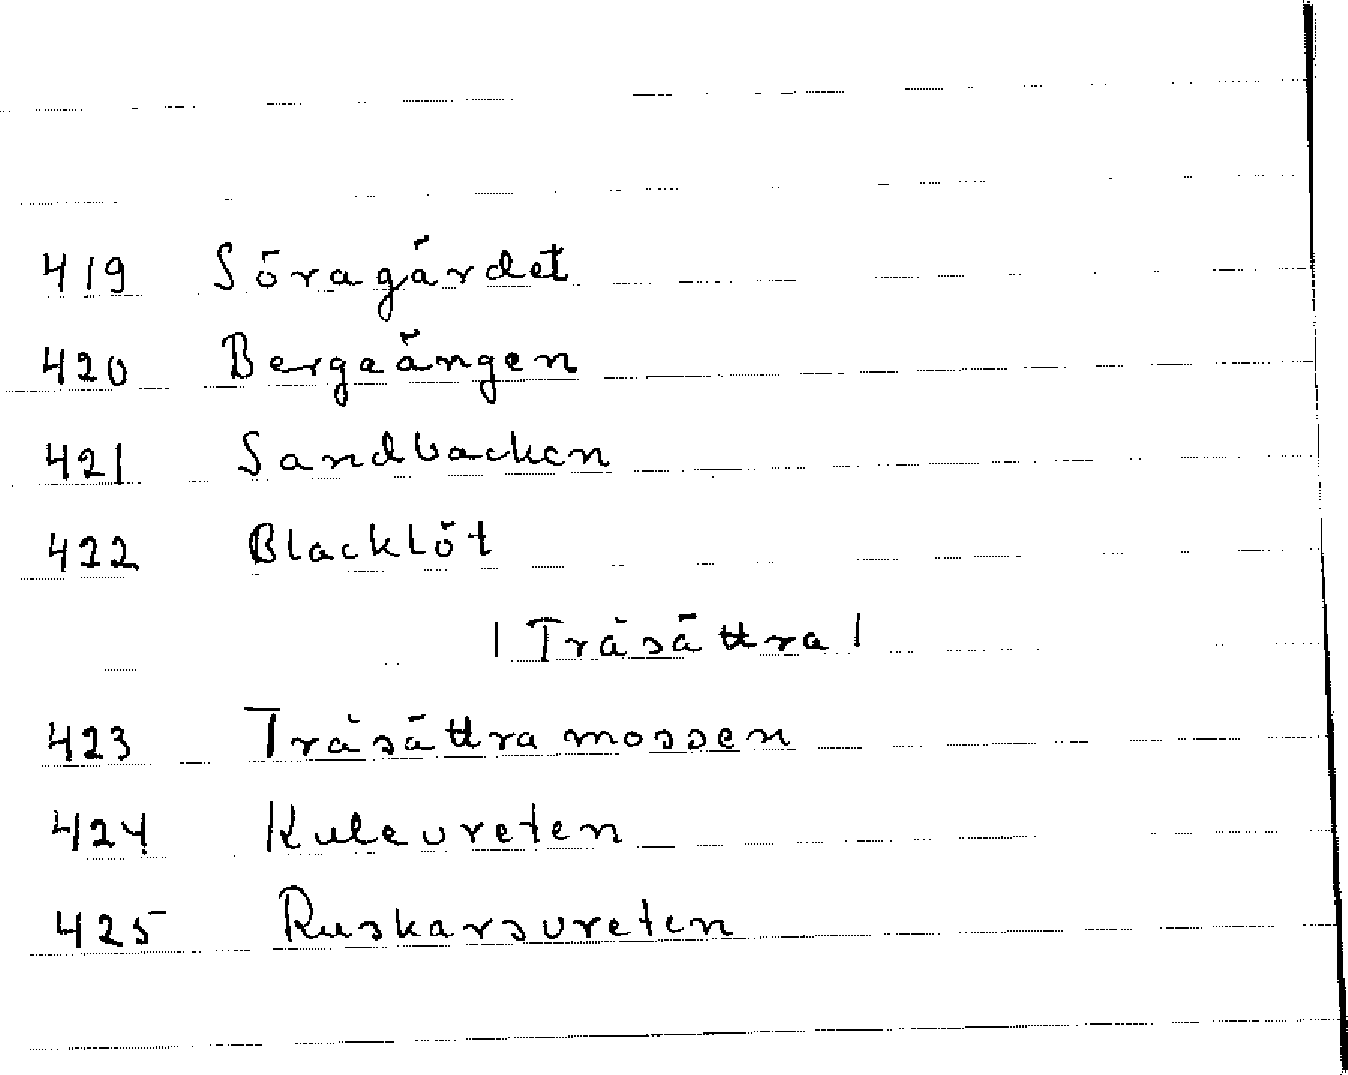 419 Söragärdet
420 Bergaängen
421 Sandbacken
422 Blacklöt
| Träsättra |
423 Träsättra mossen
424 Kulevreten
425 Ruskarsvreten